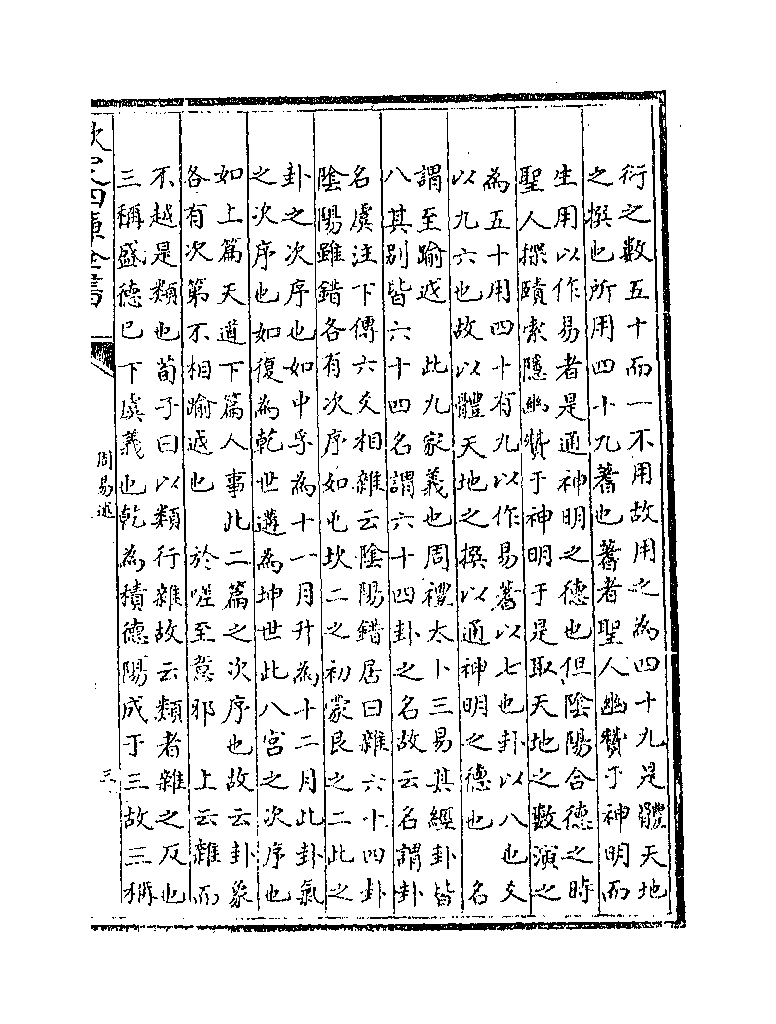 衍之數五十而一不用故用之為四十九是體天地
之撰也所用四十九蓍也蓍者聖人幽贊于神明而
生用以作易者是通神明之德也但陰陽合德之時
聖人探賾索隱幽贊于神明于是取天地之數演之
為五十用四十有九以作易蓍以七也卦以八也爻
以九六也故以體天地之撰以通神明之德也　名
謂至踰越　此九家義也周禮太卜三易其經卦皆
八其别皆六十四名謂六十四卦之名故云名謂卦
名虞注下傳六爻相雜云陰陽錯居曰雜六十四卦
陰陽雖錯各有次序如屯坎二之初蒙艮之二此之
卦之次序也如中孚為十一月升為十二月此卦氣
之次序也如復為乾世遘為坤世此八宫之次序也
如上篇天道下篇人事此二篇之次序也故云卦象
各有次第不相踰越也　於嗟至意邪　上云雜而
不越是類也荀子曰以類行雜故云類者雜之反也
三稱盛德已下虞義也乾為積德陽成于三故三稱
欽定四庫全書
周易述